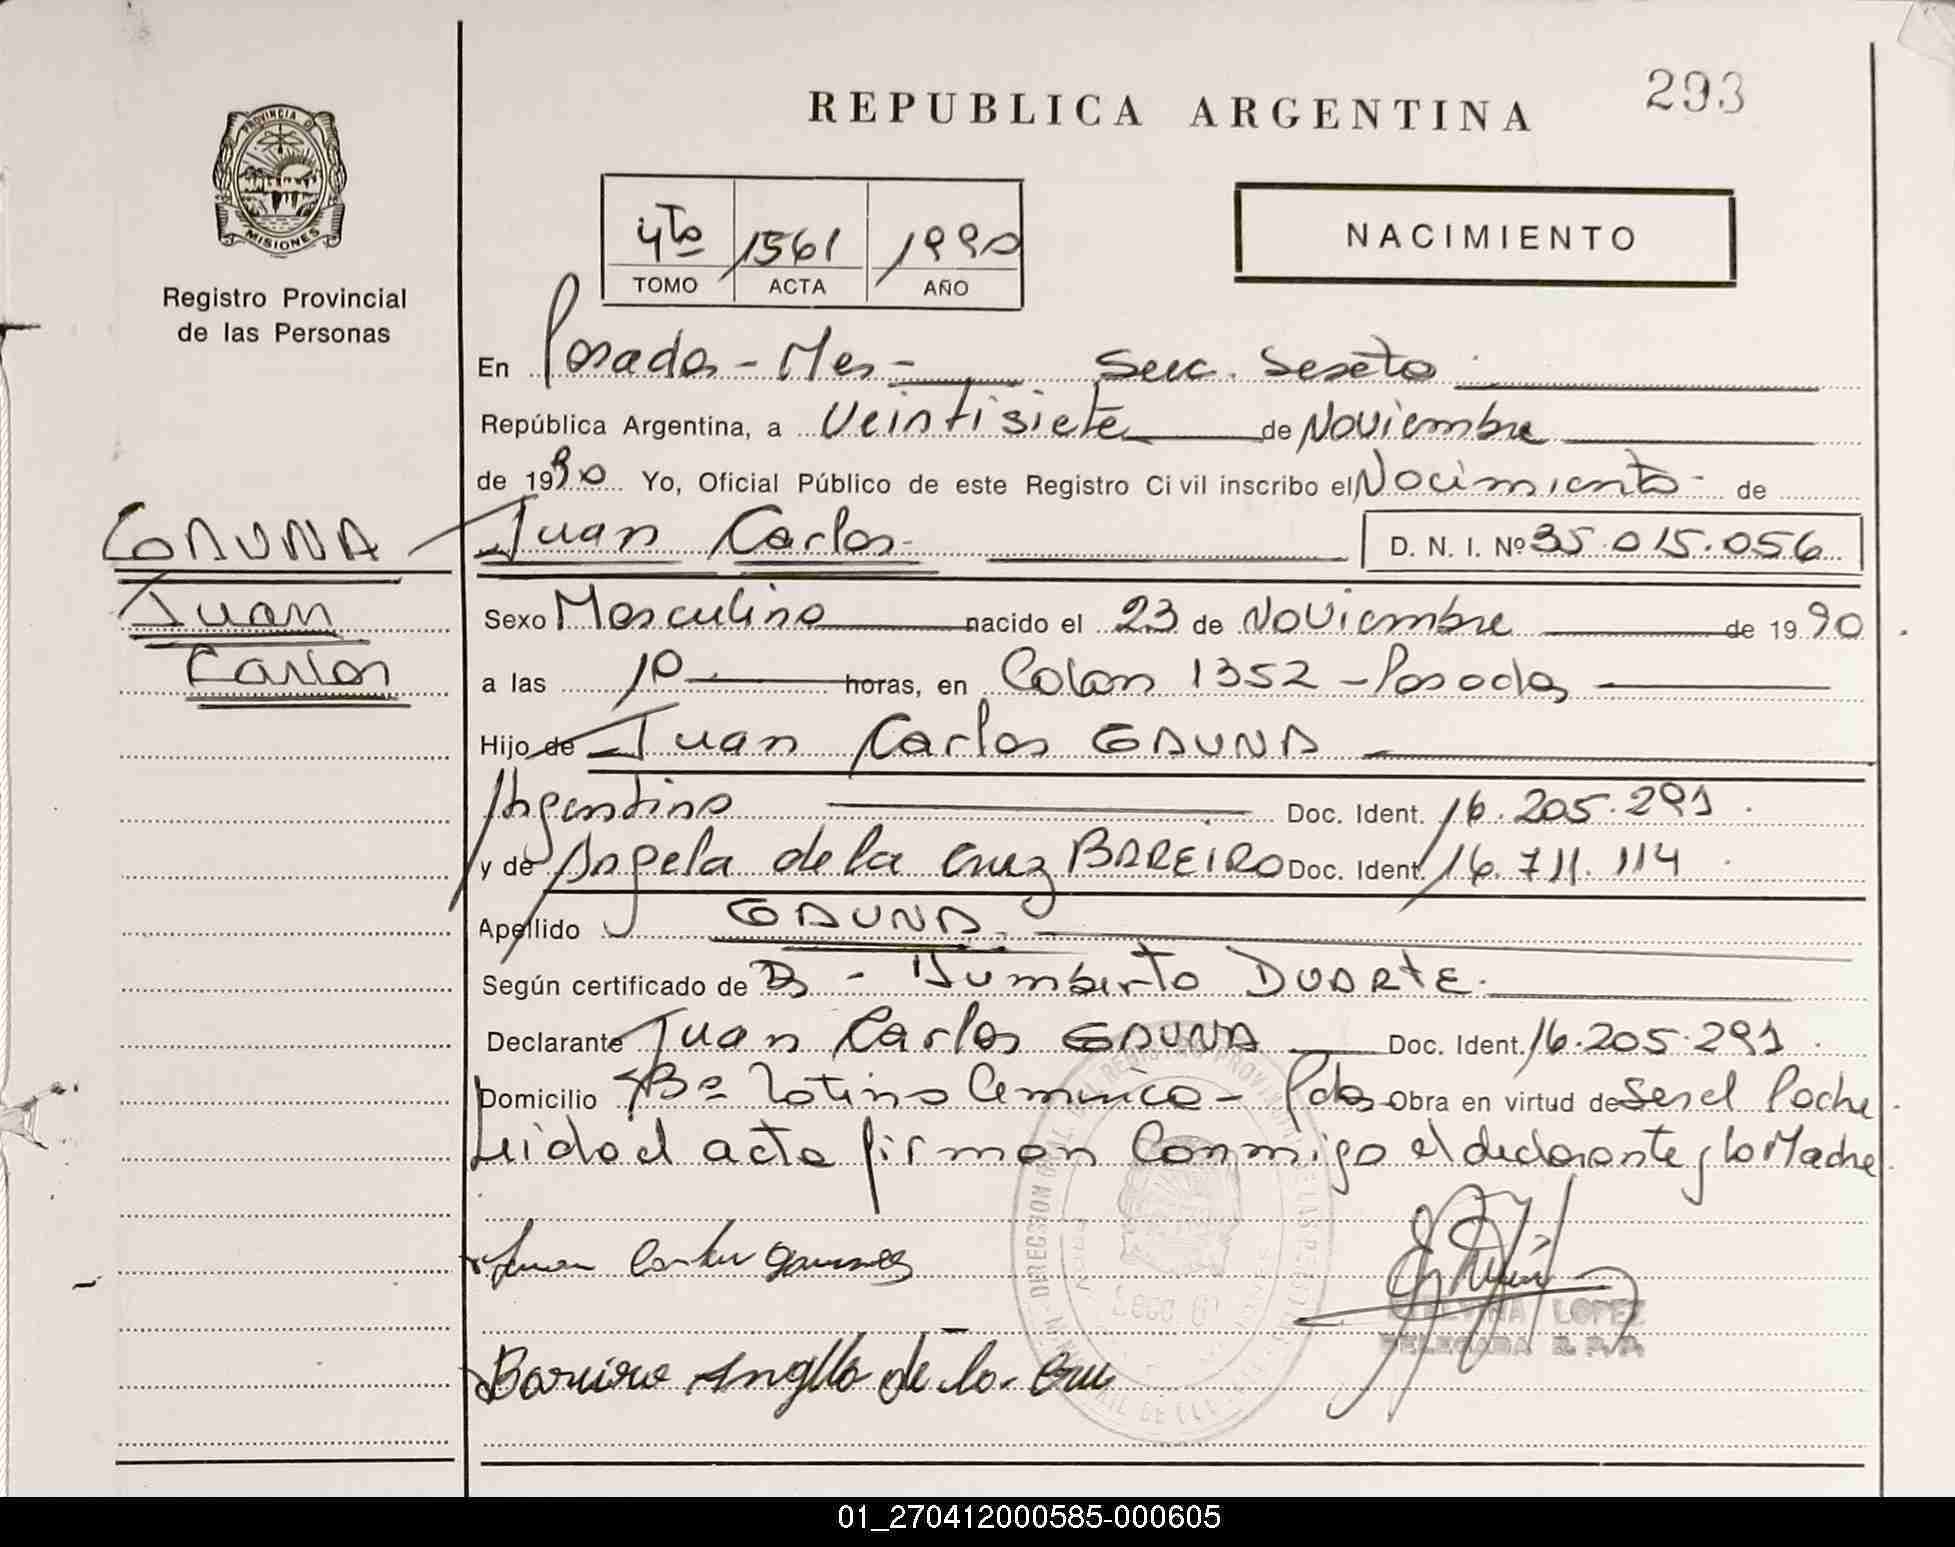 293
REPUBLICA ARGENTINA
PROVINCIA DE
MISIONES
Registro Provincial
de las Personas
4to 1561 1990
TOMO ACTA AÑO
NACIMIENTO
En Posadas - Mes - Secc. Sexta
República Argentina, a Veintisiete de Noviembre
de 1990 Yo, Oficial Público de este Registro Civil inscribo el Nacimiento de
GAUNA
Juan
Carlos
Juan Carlos D. N. I. Nº 35.015.056
Sexo Masculino nacido el 23 de Noviembre de 1990
a las 10 horas, en Colon 1352 - Posadas
Hijo de Juan Carlos GAUNA
Argentino Doc. Ident. 16.205.291
y de Angela de la Cruz BAREIRO Doc. Ident. 16.711.114
Apellido GAUNA
Según certificado de Dr - Humberto DUARTE.
Declarante Juan Carlos GAUNA Doc. Ident. 16.205.291
Domicilio Bº - Pdas Obra en virtud de Ser el Padre
Leida el acta firman Conmigo el declarante y la Madre
Juan Carlos Gauna
LOPEZ
DELEGADA R. P. P.
Bareiro Angela de la Cru
01_270412000585-000605